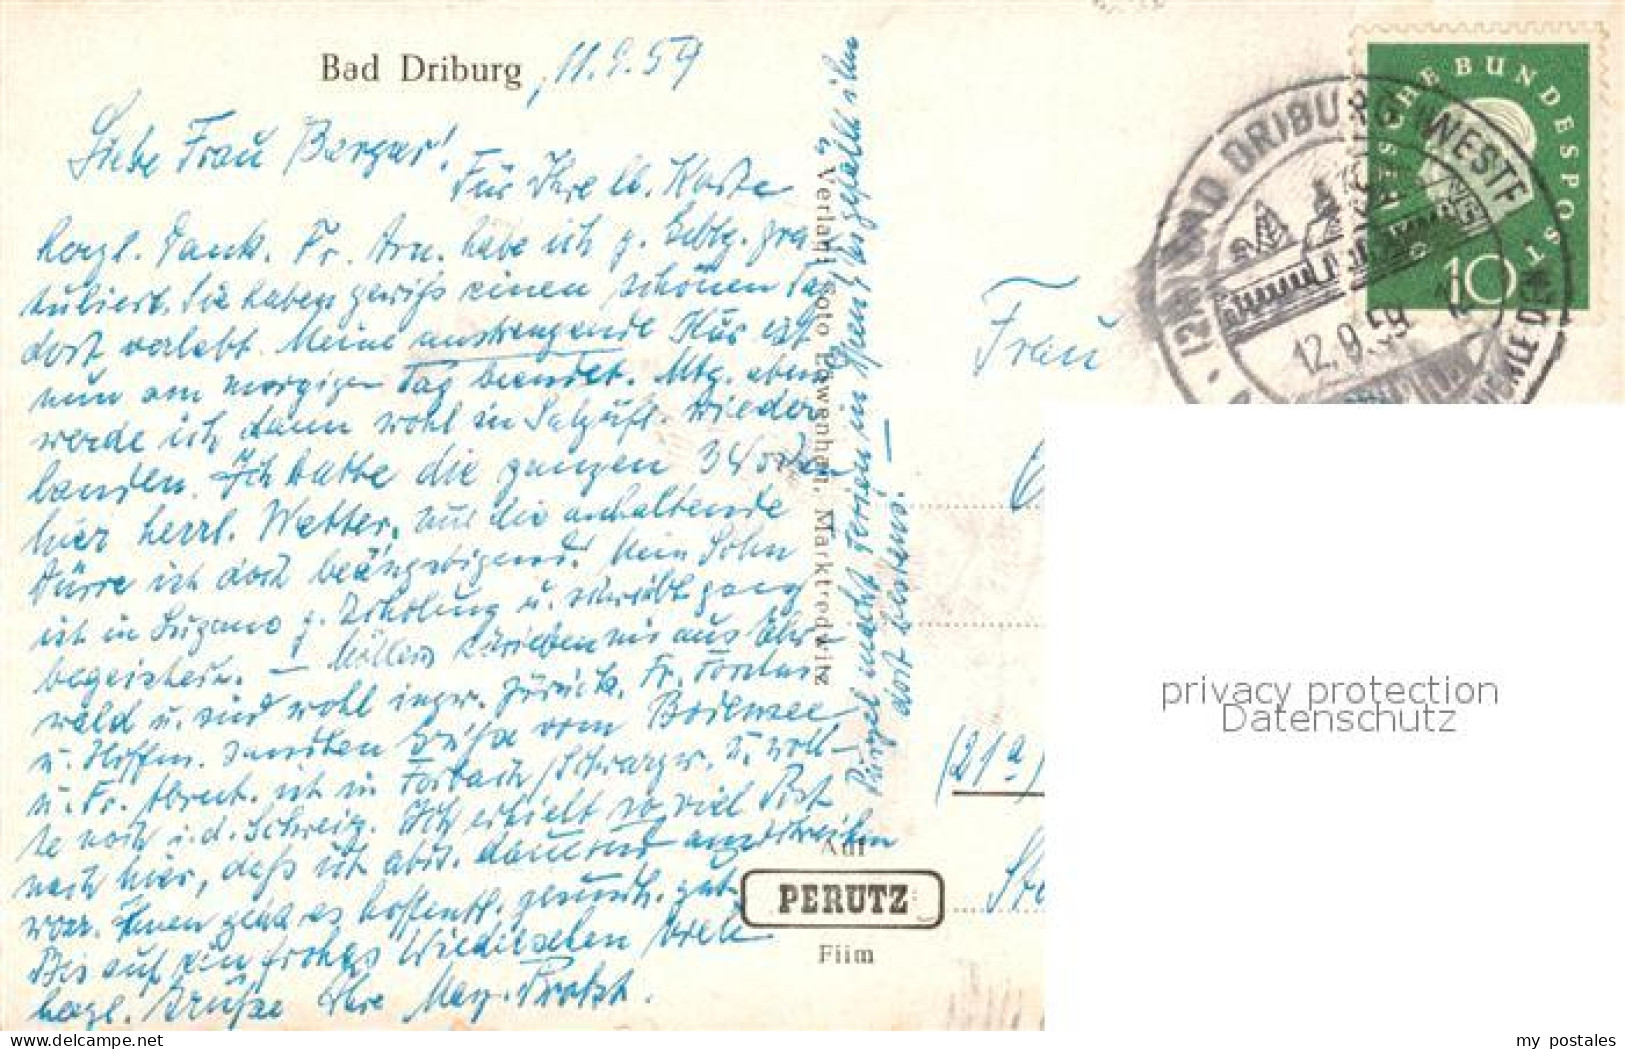 Bad Driburg, 11.9.59
Liebe Frau Berger!
Für Ihre lb. Karte
herzl. Dank. Fr. Arn. habe ich z. Gebtg. gra-
tuliert. Sie haben gewiß einen schönen Tag
dort verlebt. Meine anstrengende Kur ist
nun am morgigen Tag beendet. Mtg. abend
werde ich dann wohl in Salzufl. wieder
landen. Ich hatte die ganzen 3 Wochen
hier herrl. Wetter, nur die anhaltende
Dürre ist doch beängstigend! Mein Sohn
ist in Lugano z. Erholung u. schreibt ganz
begeistert. — Möllers schrieben mir aus
wald u. sind wohl inzw. zurück. Fr.
u. Hoffm. sandten Grüße vom Bodensee
u. Fr. ist in Forbach/Schwarzw. u. woll-
te noch i. d. Schweiz. Ich erhielt so viel Post
nach hier, daß ich abds. dauernd am Schreiben
war. Ihnen geht es hoffentl. gesundh. gut.
Bis auf ein frohes Wiedersehen viele
herzl. Grüße Ihre
macht Ferien in u. es gefällt ihm
dort bestens. —
Verlag: Foto Löwenhan, Marktredwitz
Auf
PERUTZ
Film
DEUTSCHE BUNDESPOST
10
BAD DRIBURG (WESTF
12.9.59
Frau
(21a)
privacy protection
Datenschutz
my postales